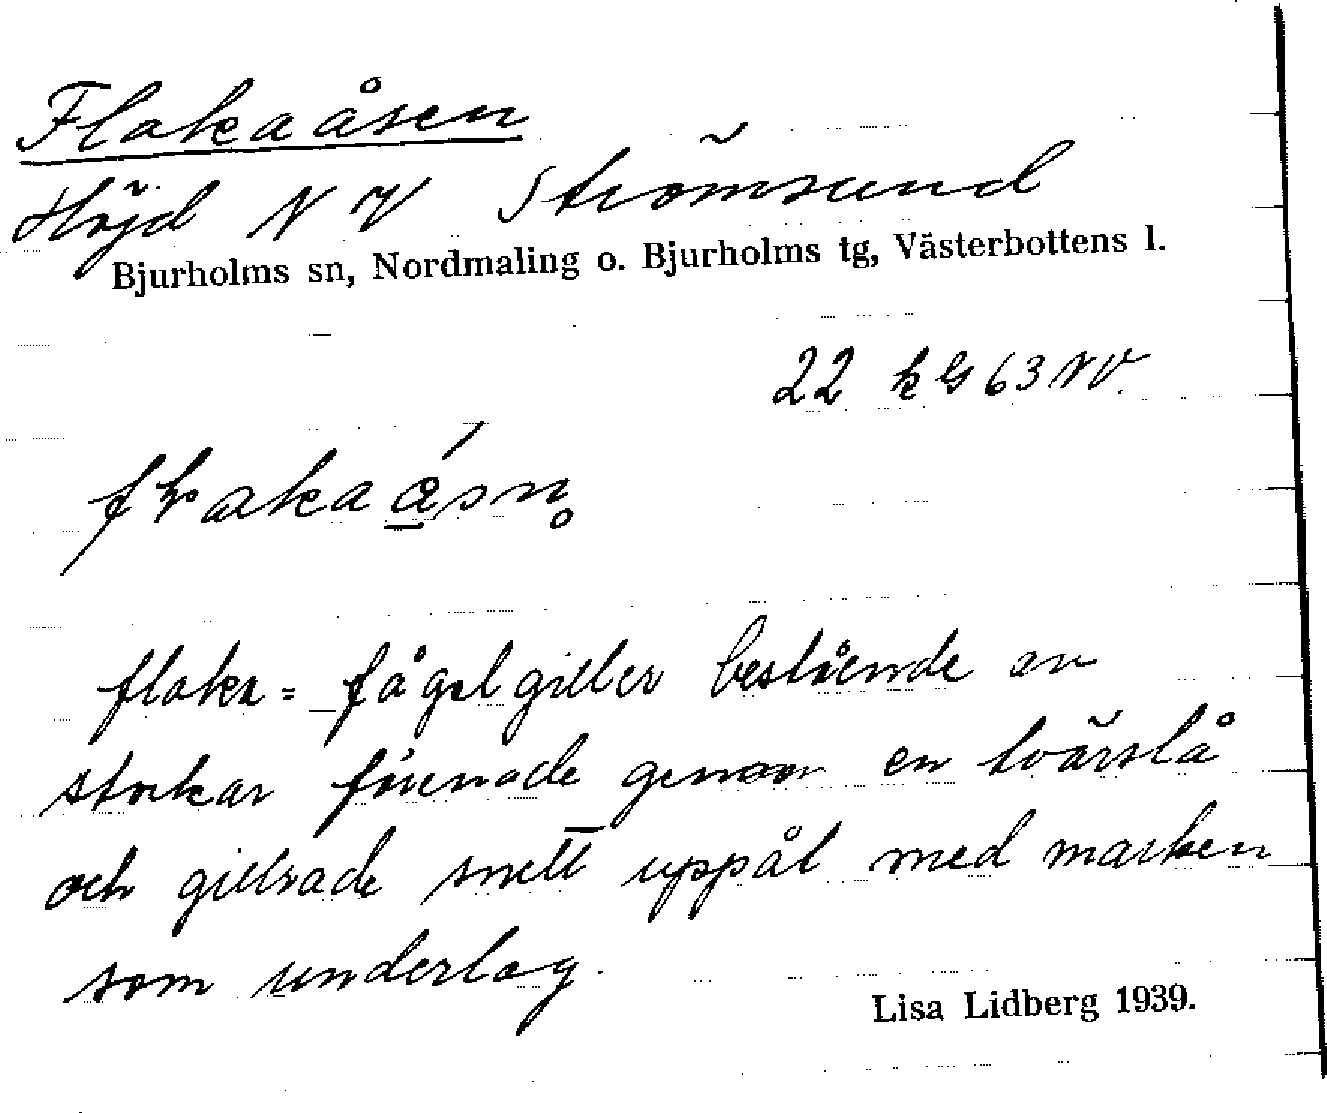 Flakaåsen
Höjd NV Strömsund
Bjurholms sn, Nordmaling o. Bjurholms tg, Västerbottens l.
22 k G 63 NV.
flaka = fågelgiller bestående av
stockar förenade genom en tvärslå
och gillrade snett uppåt med marken
som underlag.
Lisa Lidberg 1939.